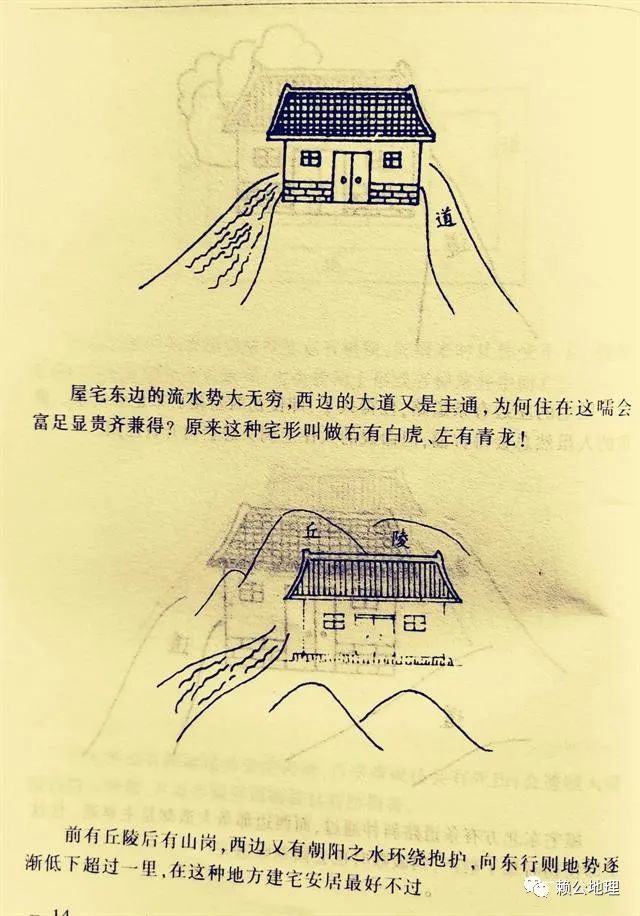 道
屋宅东边的流水势大无穷，西边的大道又是主通，为何住在这嚅会
富足显贵齐兼得？原来这种宅形叫做右有白虎、左有青龙！
丘陵
前有丘陵后有山岗，西边又有朝阳之水环绕抱护，向东行则地势逐
渐低下超过一里，在这种地方建宅安居最好不过。
14
赖公地理